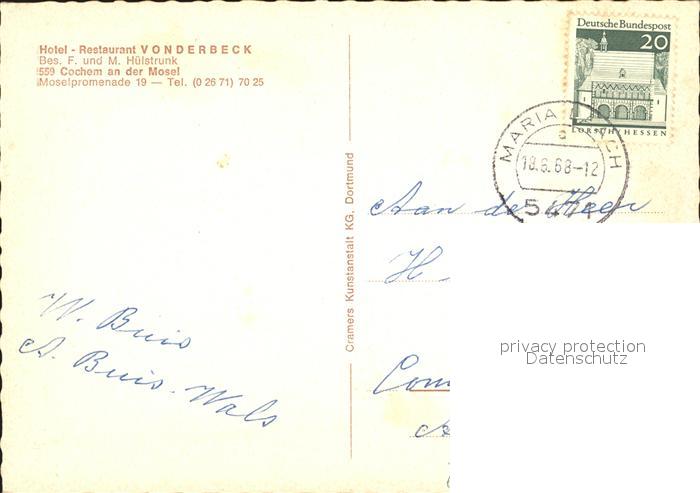 Hotel - Restaurant VONDERBECK
Bes. F. und M. Hülstrunk
559 Cochem an der Mosel
Moselpromenade 19 — Tel. (0 26 71) 70 25
Deutsche Bundespost
20
LORSCH/HESSEN
MARIA
CH
a
18.6.68-12
Aan de Heer
H
W. Buis
A. Buis-Wals
Cramers Kunstanstalt KG. Dortmund
privacy protection
Datenschutz